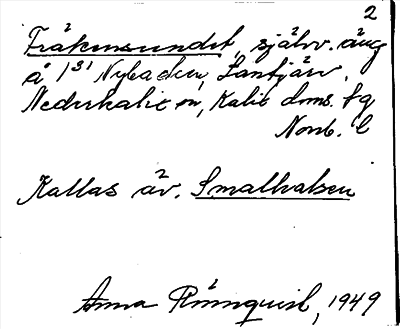 2
Fräkensundet, självv. äng
å 1³¹ Nybaden, Lantjärv,
Nederkalix sn, Kalix doms. fg
Norrb. l
Kallas äv. Smalhalsen
Anna Rönnquist, 1949